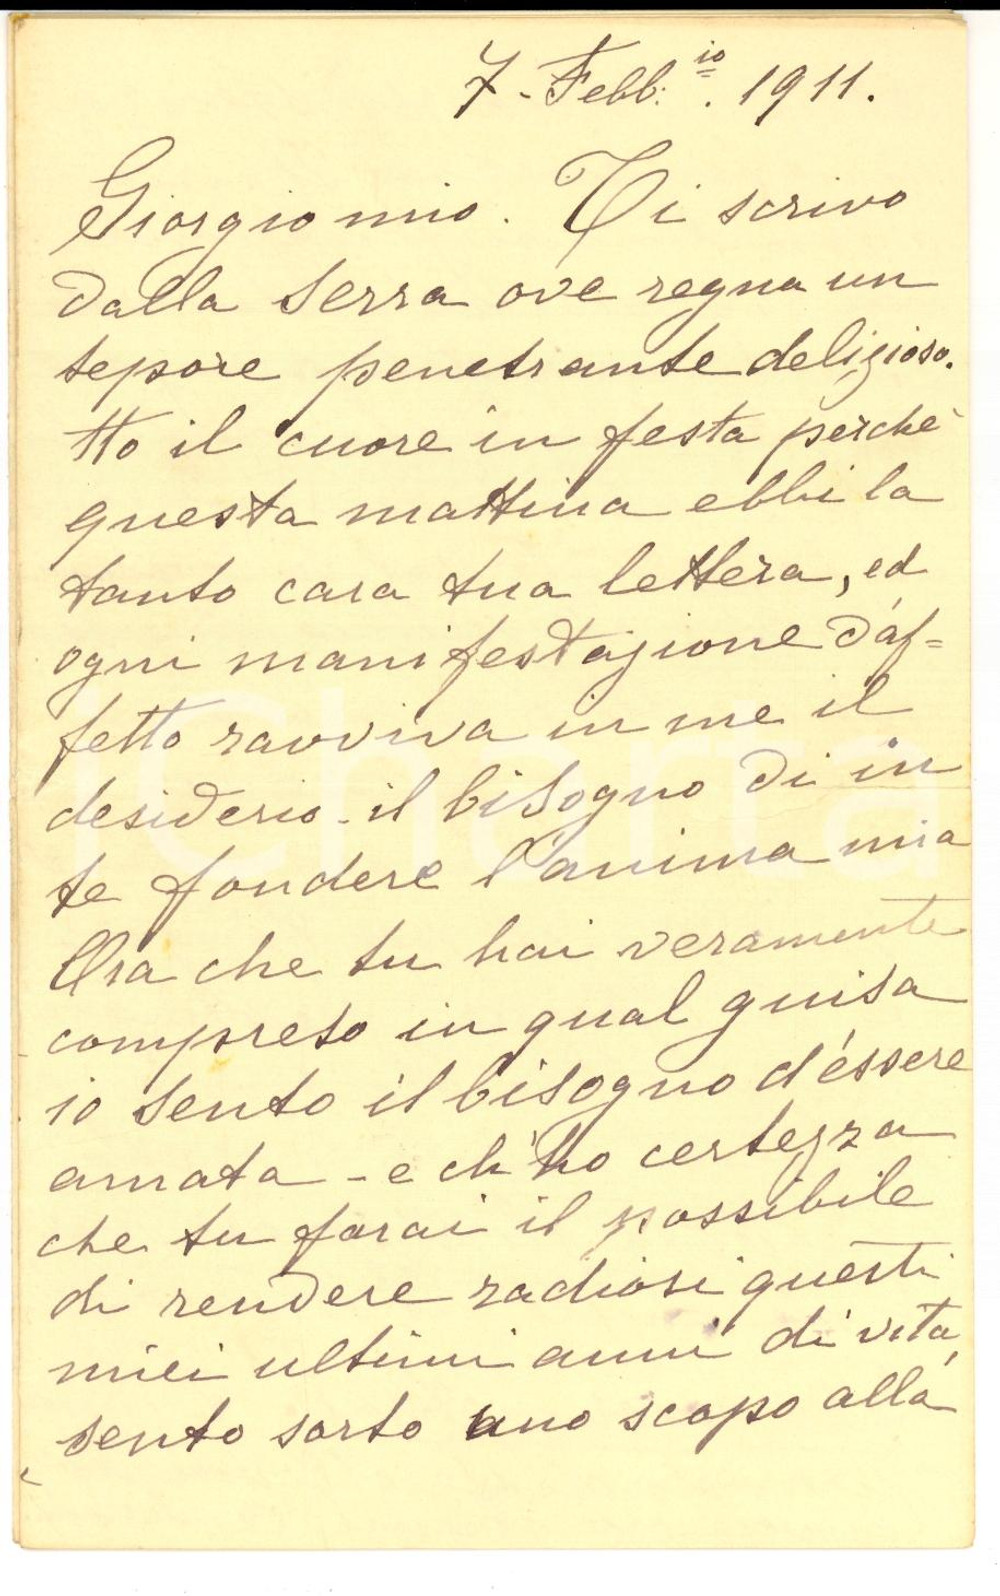 7. Febb:io. 1911.
Giorgio mio. Ti scrivo
dalla serra ove regna un
tepore penetrante delizioso.
Ho il cuore in festa perchè
questa mattina ebbi la
tanto cara tua lettera, ed
ogni manifestazione d'af=
fetto ravviva in me il
desiderio - il bisogno di in
te fondere l'anima mia
Ora che tu hai veramente
compreso in qual guisa
io sento il bisogno d'éssere
amata - e ch'ho certezza
che tu farai il possibile
di rendere radiosi questi
miei ultimi anni di vita,
sento sorto uno scopo alla
iCharta